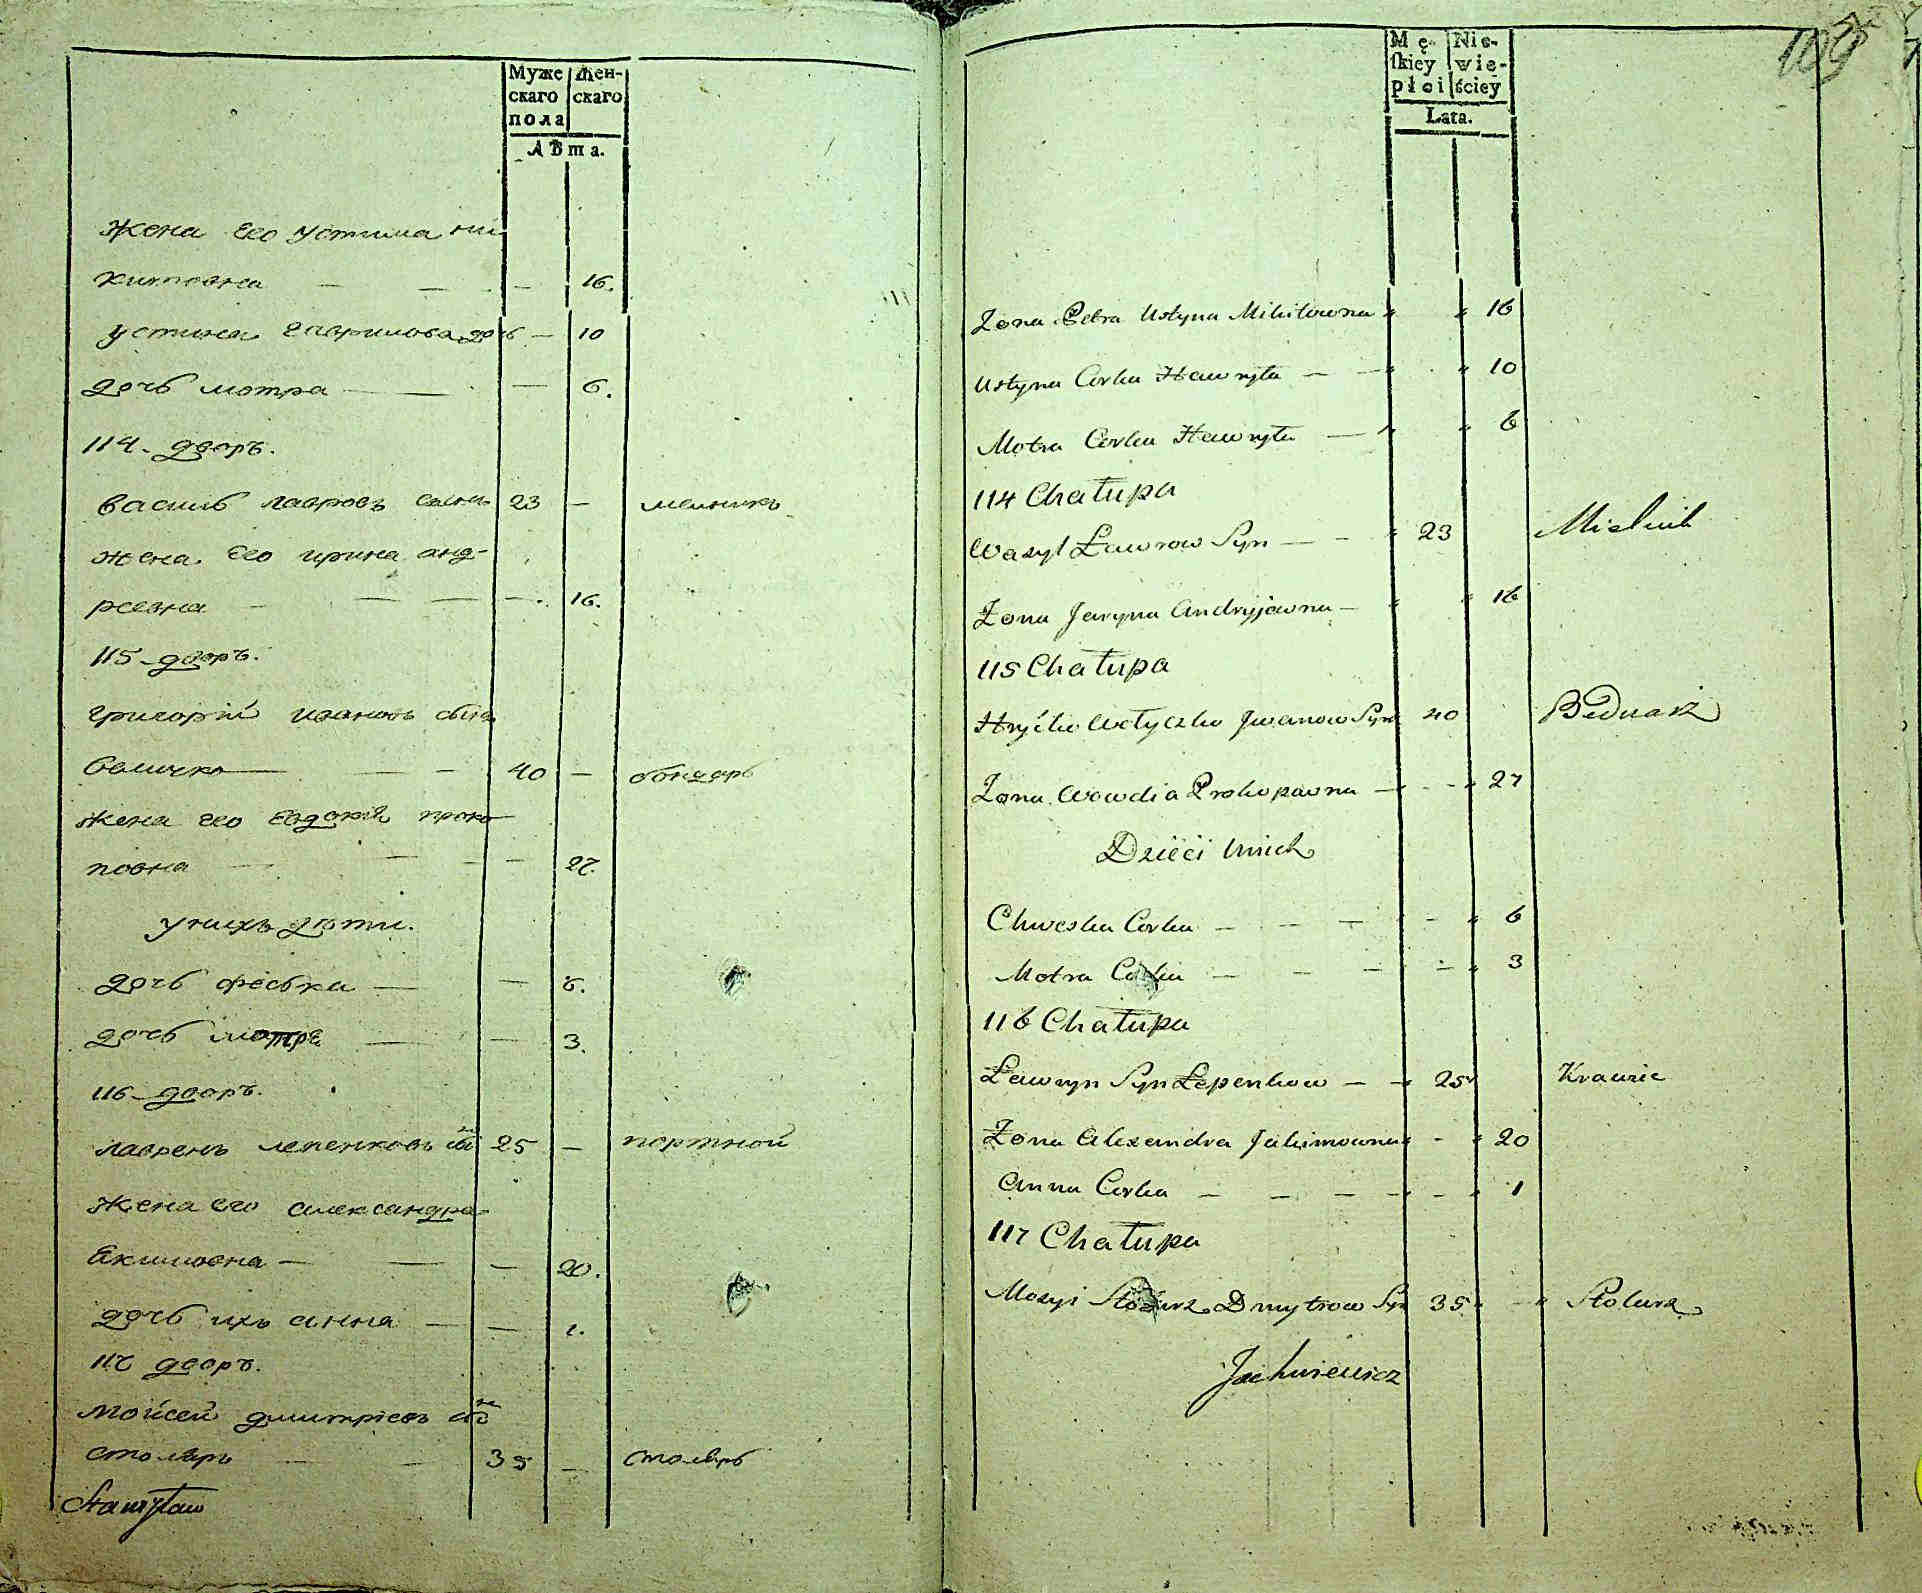 Муже Жен-
скаго скаго
пола
Лѣта.
жена его устина ни
китовна — — — 16.
устина гаврилова дочь — 10
дочь мотра — — — 6.
114. дворъ.
василь лавровъ сынъ 23 — мелникъ
жена его ирина анд-
реевна — — — — 16.
115. дворъ.
григорій ивановъ сынъ
величко — — — 40 — бондарь
жена его евдокія проко
повна — — — — 27.
у нихъ дѣти.
дочь феська — — 6.
дочь мотря — — 3.
116. дворъ.
лавренъ лепенковъ сынъ 25 — портной
жена его александра
Екимовна — — — 20.
дочь ихъ анна — — 1.
117 дворъ.
мойсей дмитріевъ сынъ
столяръ — — 35 — столяръ
Stanisław
Mę- Nie-
skiey wie-
płci ściey
Lata.
109
Żona Petra Ustyna Mikitowna " " 16
Ustyna Corka Hawryła — — " " 10
Motra Corka Hawryła — " " 6
114 Chałupa
Wasyl Ławrow Syn — — " 23 Mielnik
Żona Jaryna Andryjowna — " " 16
115 Chałupa
Hryćko Wełyczko Jwanow Syn 40 Bednarz
Żona Wowdia Prokopowna — — - " 27
Dzieci Unich
Chweska Corka — — — - - " 6
Motra Corka — — — - — " 3
116 Chałupa
Ławryn Syn Łepenkow — — 25 Krawiec
Żona Alexandra Jakimowna " - " 20
Anna Corka — — — — - " 1
117 Chałupa
Mosyi Stolarz Dmytrow Syn 35 " — " Stolarz
Jachniewicz